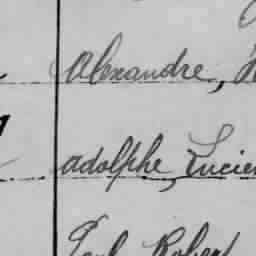 Alexandre,
adolphe, Lucien
Paul Robert